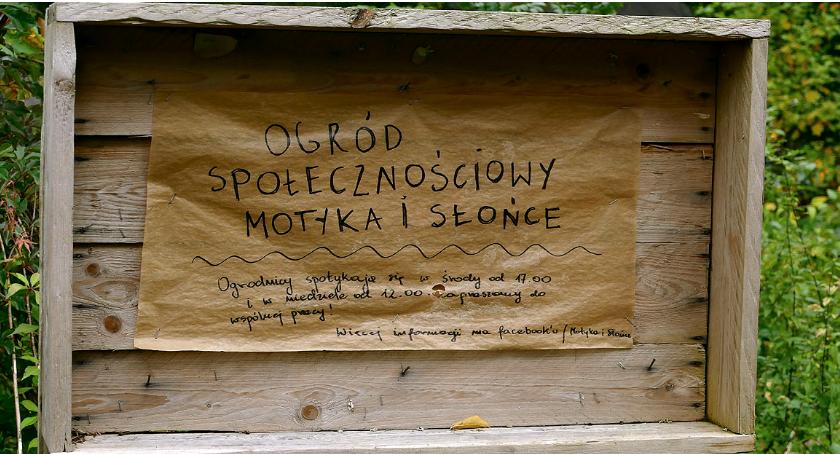 OGRÓD
SPOŁECZNOŚCIOWY
MOTYKA I SŁOŃCE
Ogrodnicy spotykają się w środy od 17.00
i w niedziele od 12.00. Zapraszamy do
wspólnej pracy!
Więcej informacji na facebook'u / Motyka i Słońce